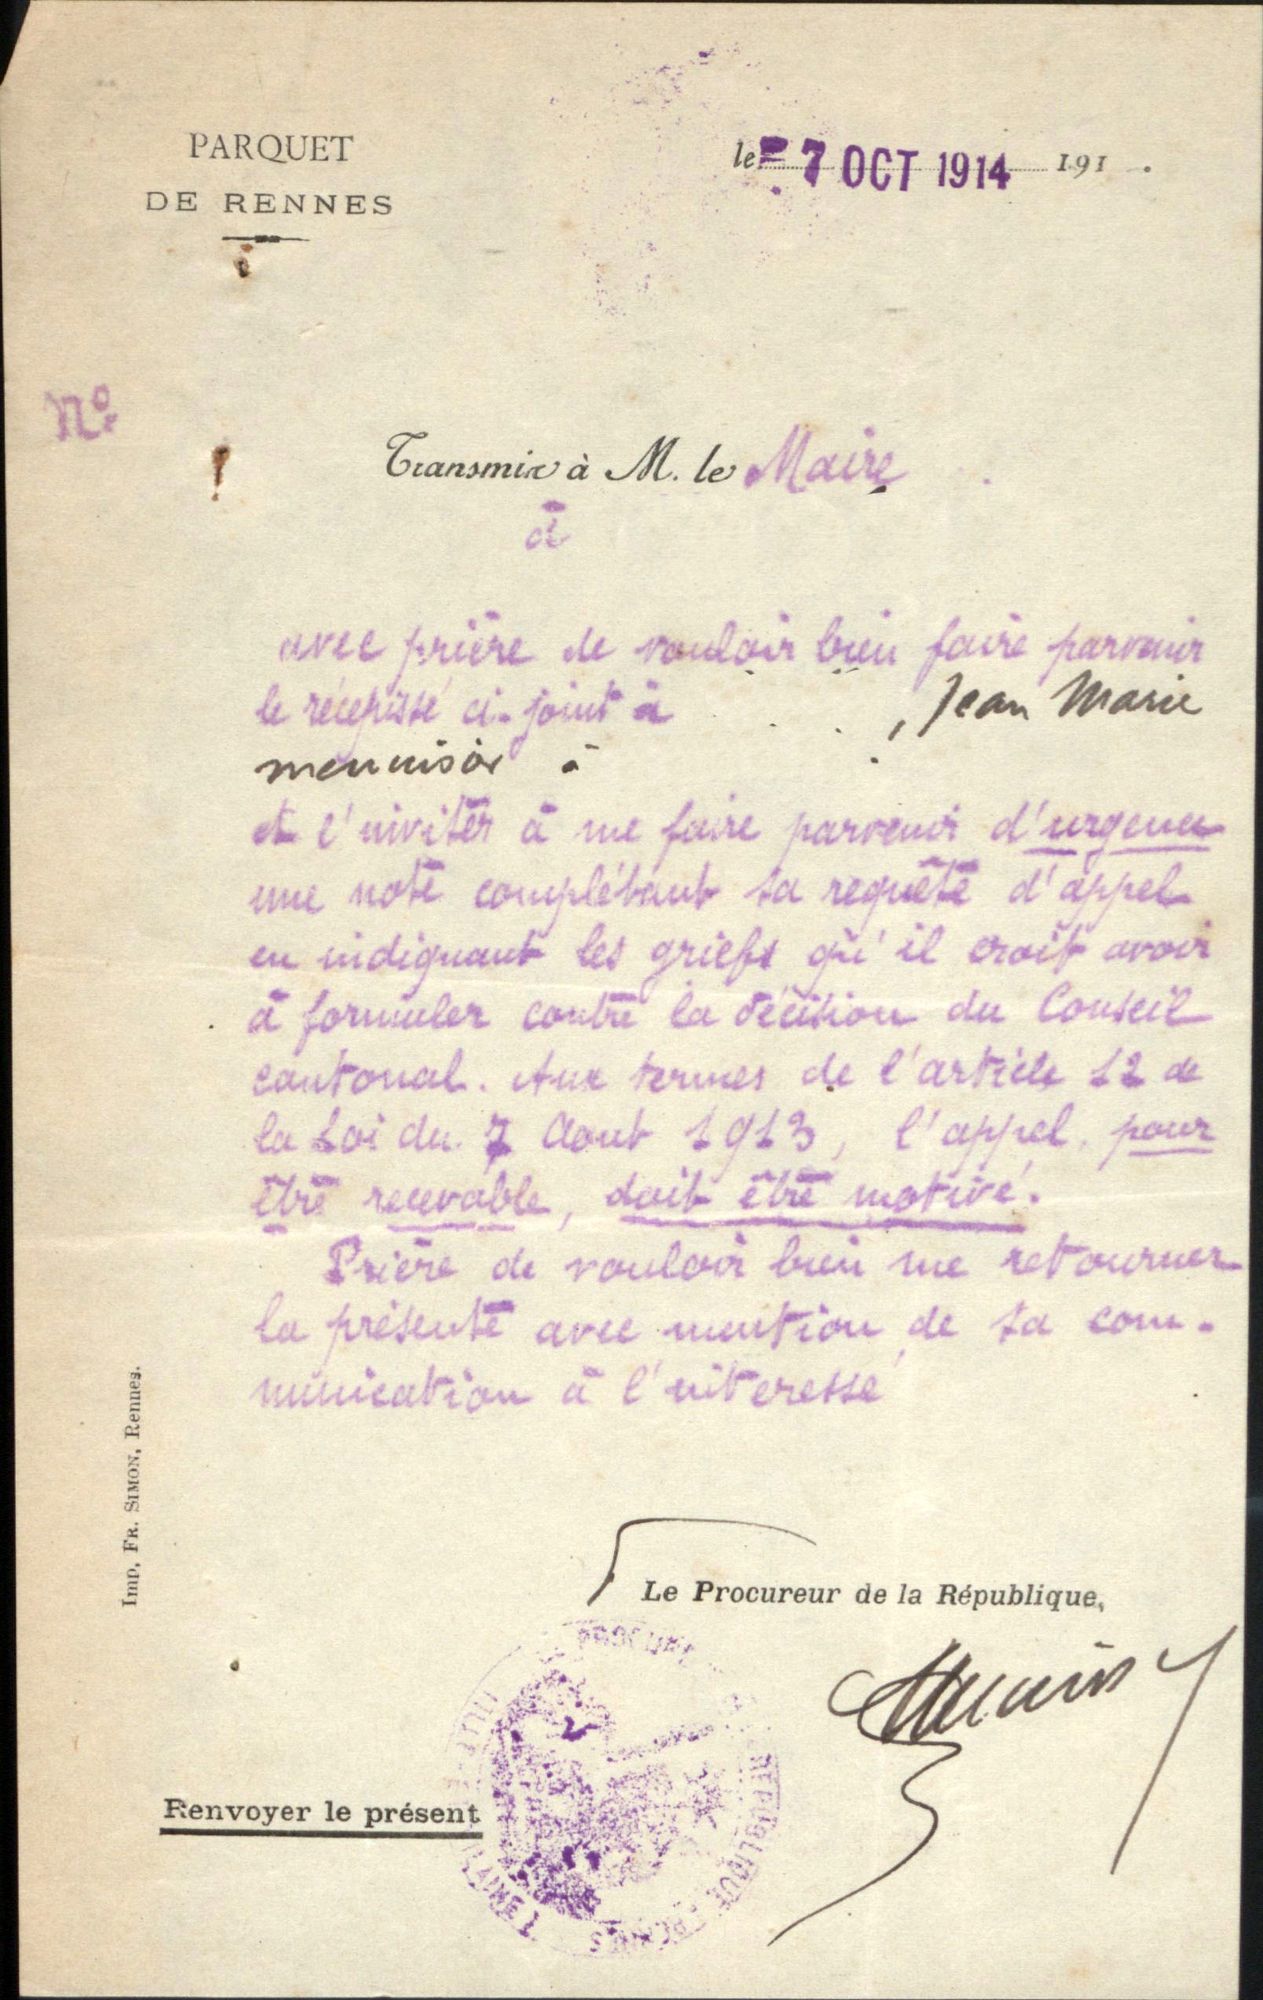 PARQUET
DE RENNES
le - 7 OCT 1914 191 .
N°
Transmis à M. le Maire
à
avec prière de vouloir bien faire parvenir
le récépissé ci-joint à , Jean Marie
menuisier à
et l'inviter à me faire parvenir d'urgence
une note complétant sa requête d'appel
en indiquant les griefs qu'il croit avoir
à formuler contre la décision du Conseil
cantonal. Aux termes de l'article 12 de
la Loi du 7 Aout 1913, l'appel, pour
être recevable, doit être motivé.
Prière de vouloir bien me retourner
la présente avec mention de sa com-
munication à l'intéressé
Imp. FR. SIMON, Rennes.
Le Procureur de la République,
Renvoyer le présent
RÉPUBLIQUE